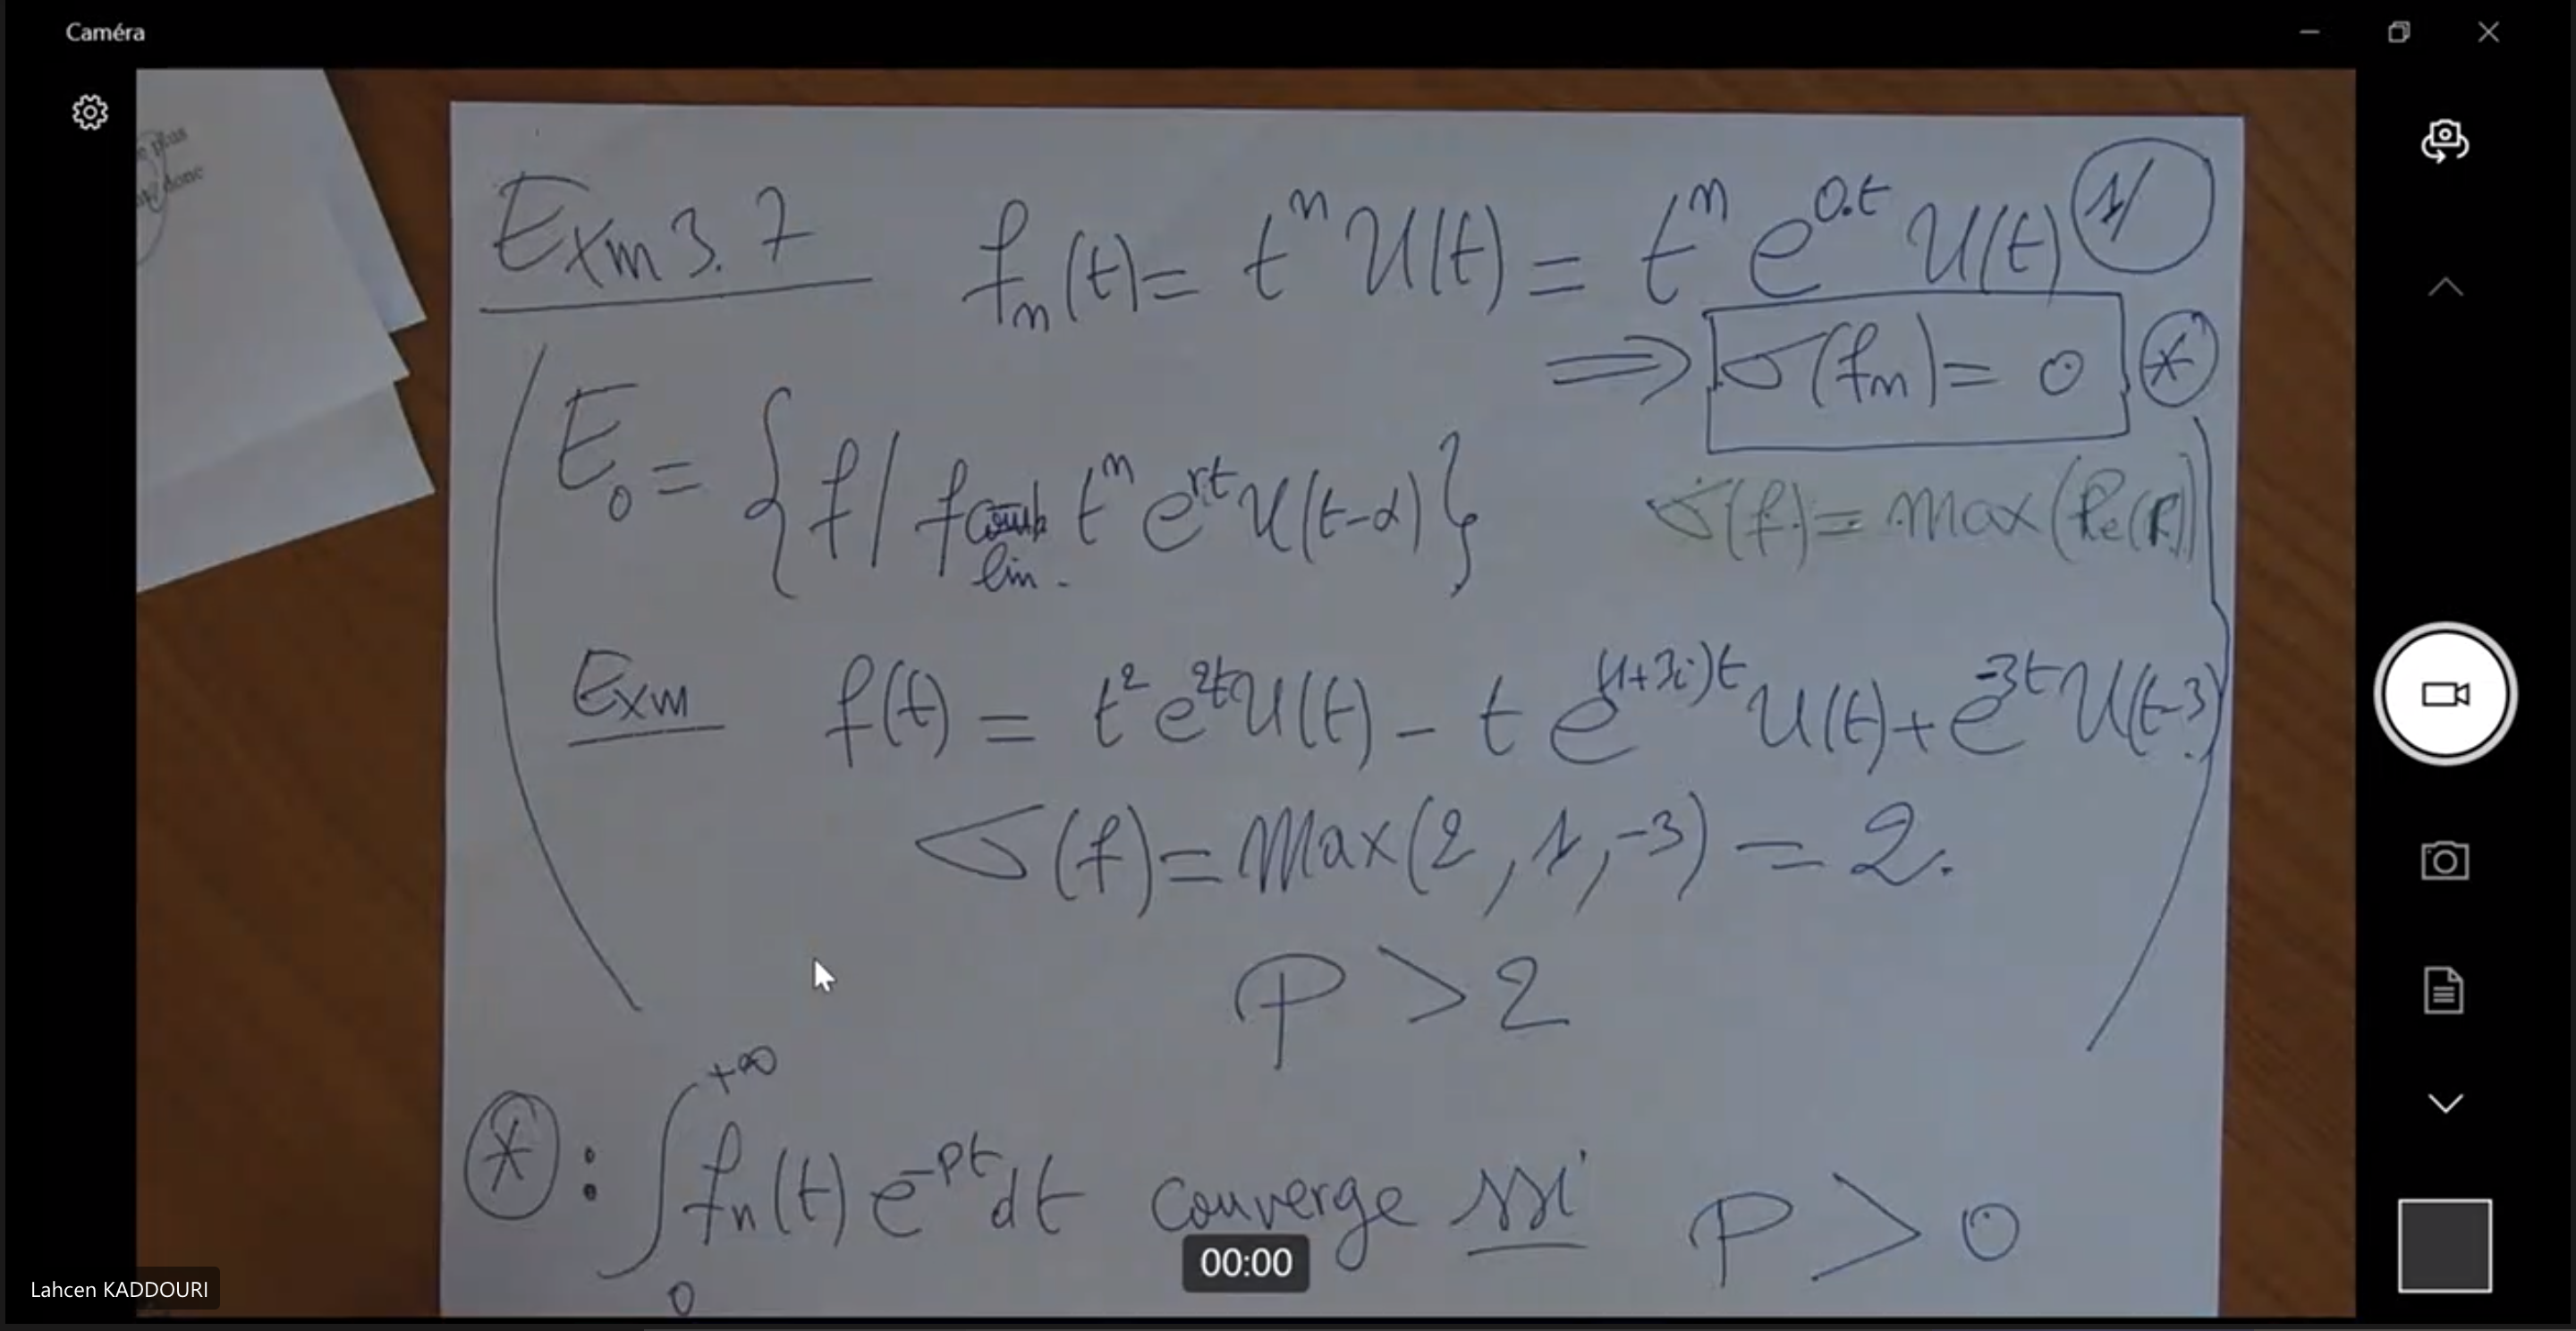 Caméra
e plus
donc
Exm 3.7 fn(t) = t^n U(t) = t^n e^{0.t} U(t) 1/
⇒ σ(fn) = 0 (*)
E₀ = { f / f comb lin. t^n e^{rt} U(t-α) }
σ(f) = max(Re(r))
Exm f(t) = t² e^{2t} U(t) - t e^{(1+3i)t} U(t) + e^{-3t} U(t-3)
σ(f) = Max(2, 1, -3) = 2.
P > 2
(*) : ∫₀^{+∞} fn(t) e^{-pt} dt converge ssi P > 0
00:00
Lahcen KADDOURI